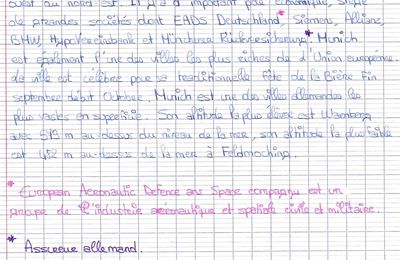 ouest au nord est. Il y'a d'important pole économique, siège
de grandes sociétés dont EADS Deutschland*, Siemens, Allianz,
BMW, HypoVereinsbank et Münchener Rückversicherung*. Munich
est également l'une des villes les plus riches de d'Union européenne.
La ville est célèbre pour sa traditionnelle fête de la Bière fin
septembre début Octobre. Munich est une des villes allemandes les
plus vastes en superficie. Son altitude la plus élevée est Warnberg
avec 579 m au-dessus du niveau de la mer, son altitude la plus faible
est 492 m au-dessus de la mer à Feldmoching.
* European Aeronautic Defence ans Space compagny est un
groupe de l'industrie aéronautique et spatiale civile et militaire.
* Assureur allemand.